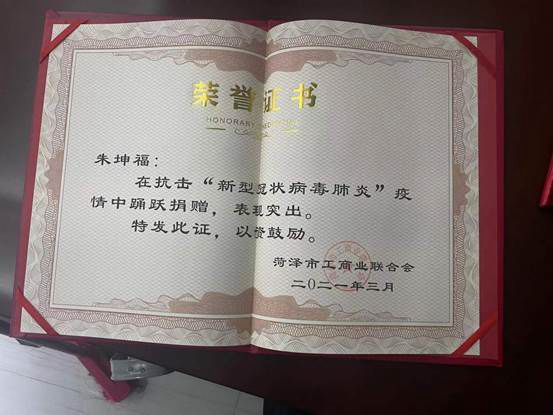 荣誉证书
HONORARY
朱坤福：
在抗击“新型冠状病毒肺炎”疫
情中踊跃捐赠，表现突出。
特发此证，以资鼓励。
菏泽市工商业联合会
二〇二一年三月